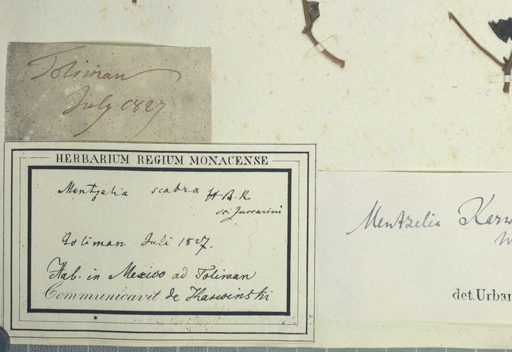 Toliman
July 1827
HERBARIUM REGIUM MONACENSE
Mentzelia scabra H B. K
Toliman Juli 1827.
Hab. in Mexico ad Toliman
Communicavit de Karwinski
Mentzelia Karw
det. Urban